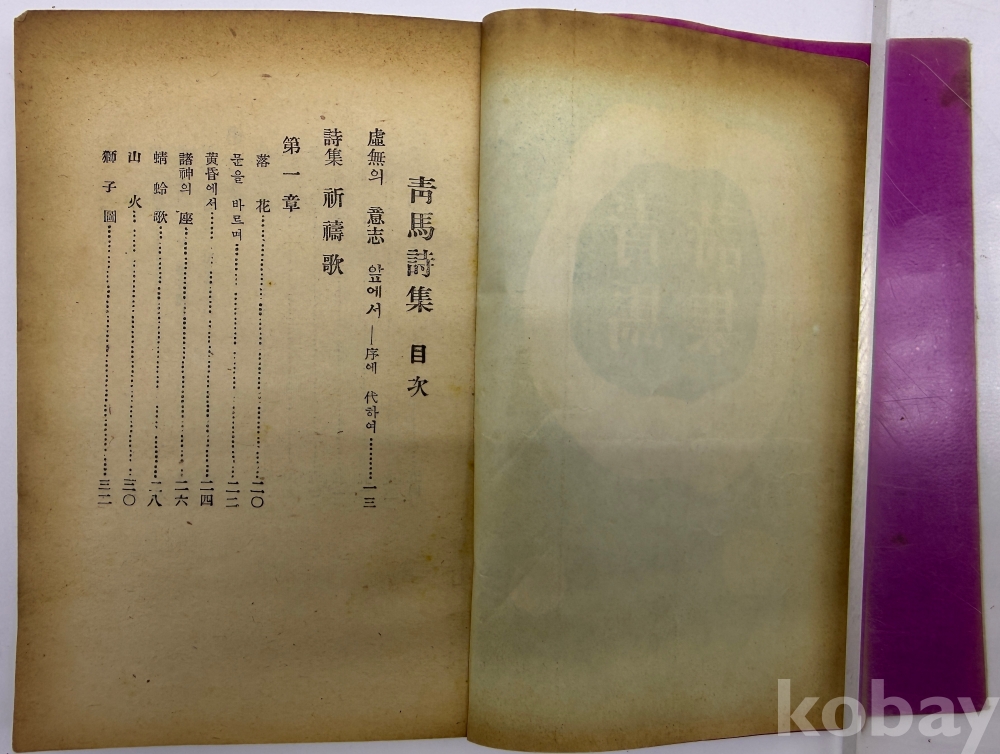 靑馬詩集 目次
虛無의 意志 앞에서—序에 代하여………一三
詩集 祈禱歌
第一章
落花………二〇
문을 바르며………二二
黃昏에서………二四
諸神의 座………二六
蜻蛉歌………二八
山火………三〇
獅子圖………三二
kobay